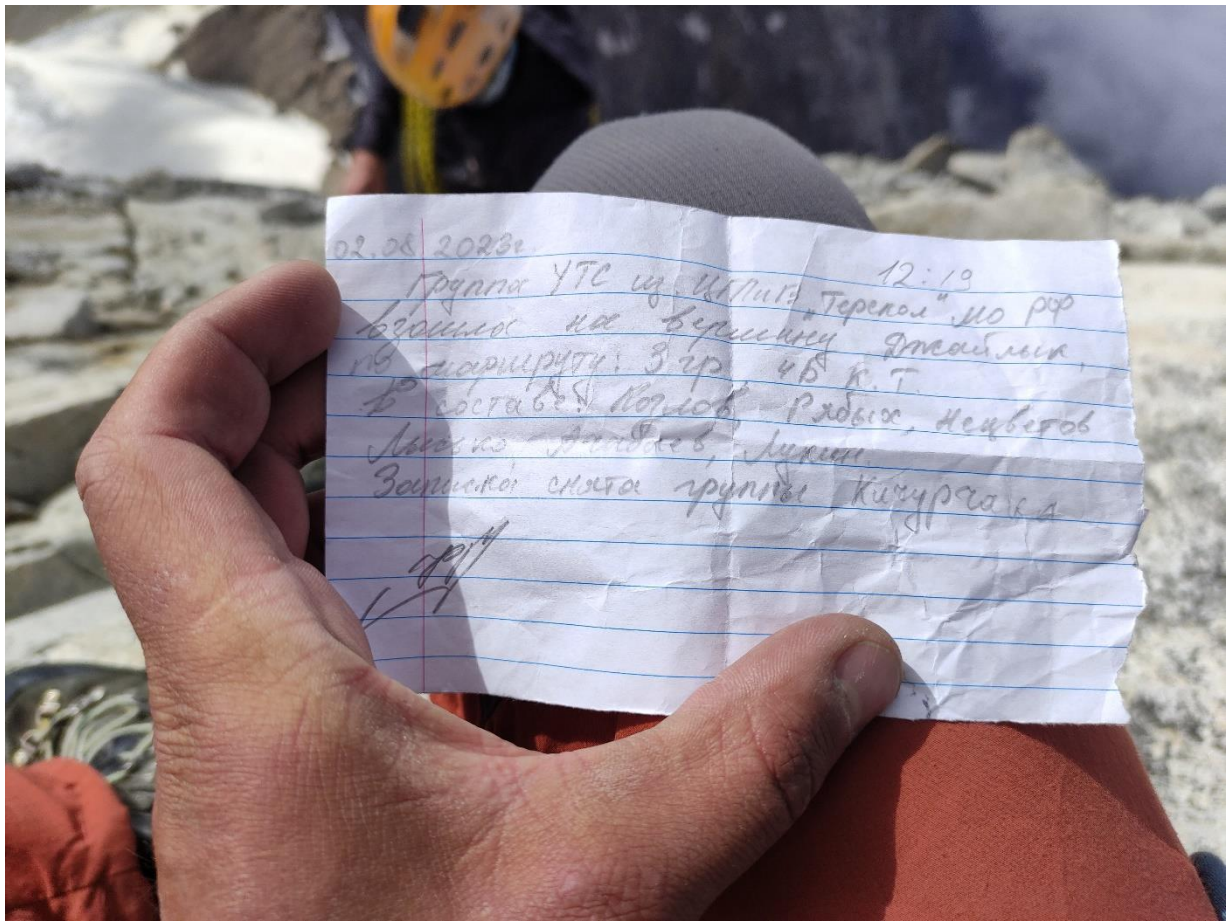 02.08 2023г.
12:19
Группа УТС из ЦГПиГ "Терскол" МО РФ
взошла на вершину Джайлык,
по маршруту: 3 гр, 4Б к.т.
В составе: Козлов, Рябых, Нецветов
Лысько, Лукин
Записка снята группы Кичурчака